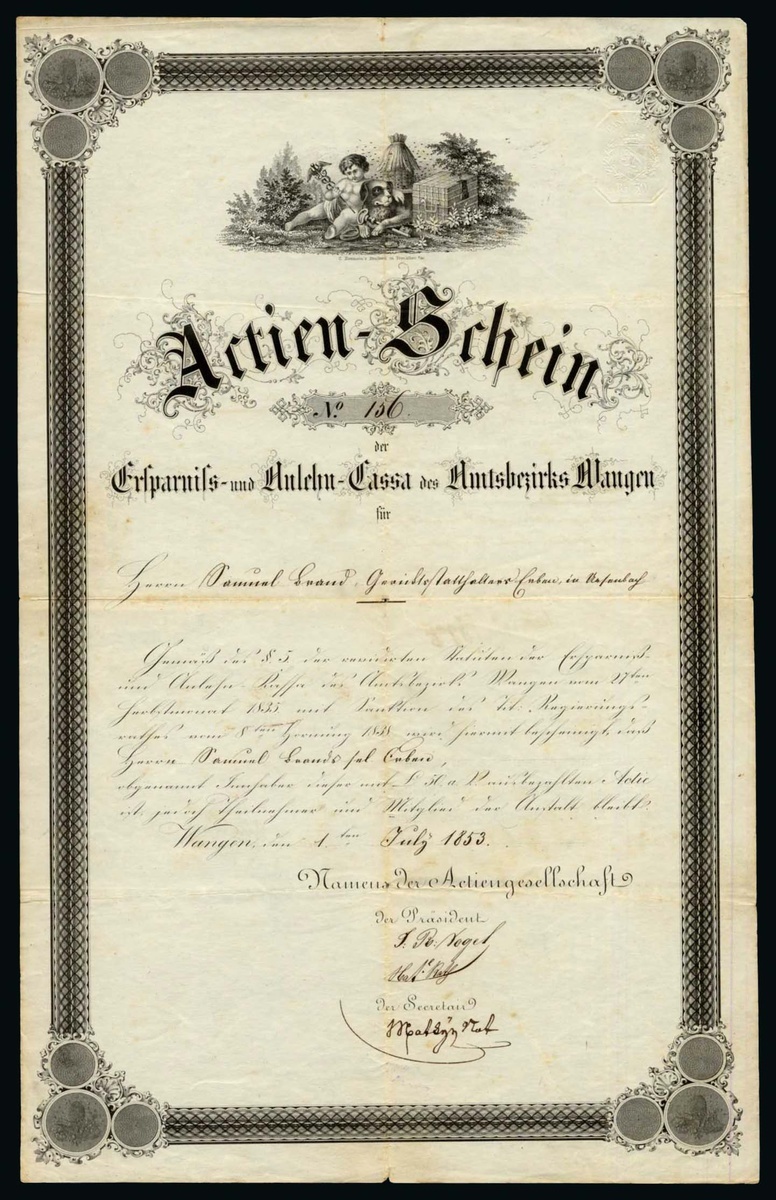 Actien-Schein
No. 156.
der
Ersparniss- und Anlehn-Cassa des Amtsbezirks Wangen
für
Herrn Samuel Brand Gerichtsstatthalters Erben, in Ursenbach
Gemäß des § 5. der revidirten Statuten der Ersparniß-
und Anlehn-Kassa des Amtsbezirks Wangen vom 27ten
Herbstmonat 1835 mit Sanktion des Tit. Regierungs-
rathes vom 8ten Hornung 1838 wird hiermit bescheinigt, daß
Herrn Samuel Brands sel Erben,
obgenannt Innhaber dieser mit 50 ausbezahlten Actie
ist, jedoch Theilnehmer und Mitglied der Anstalt bleibt.
Wangen, den 1ten July 1853.
Namens der Actiengesellschaft
der Präsident
J. R. Vogel
der Secretair
Not